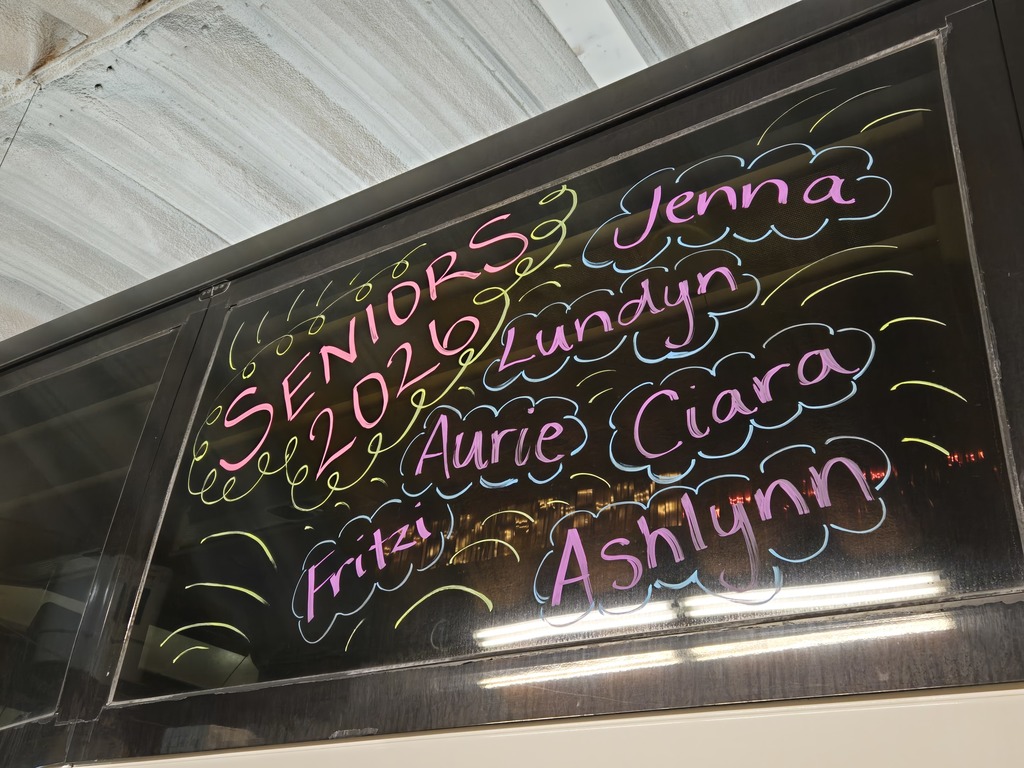 SENIORS
2026
Jenna
Lundyn
Aurie
Ciara
Fritzi
Ashlynn